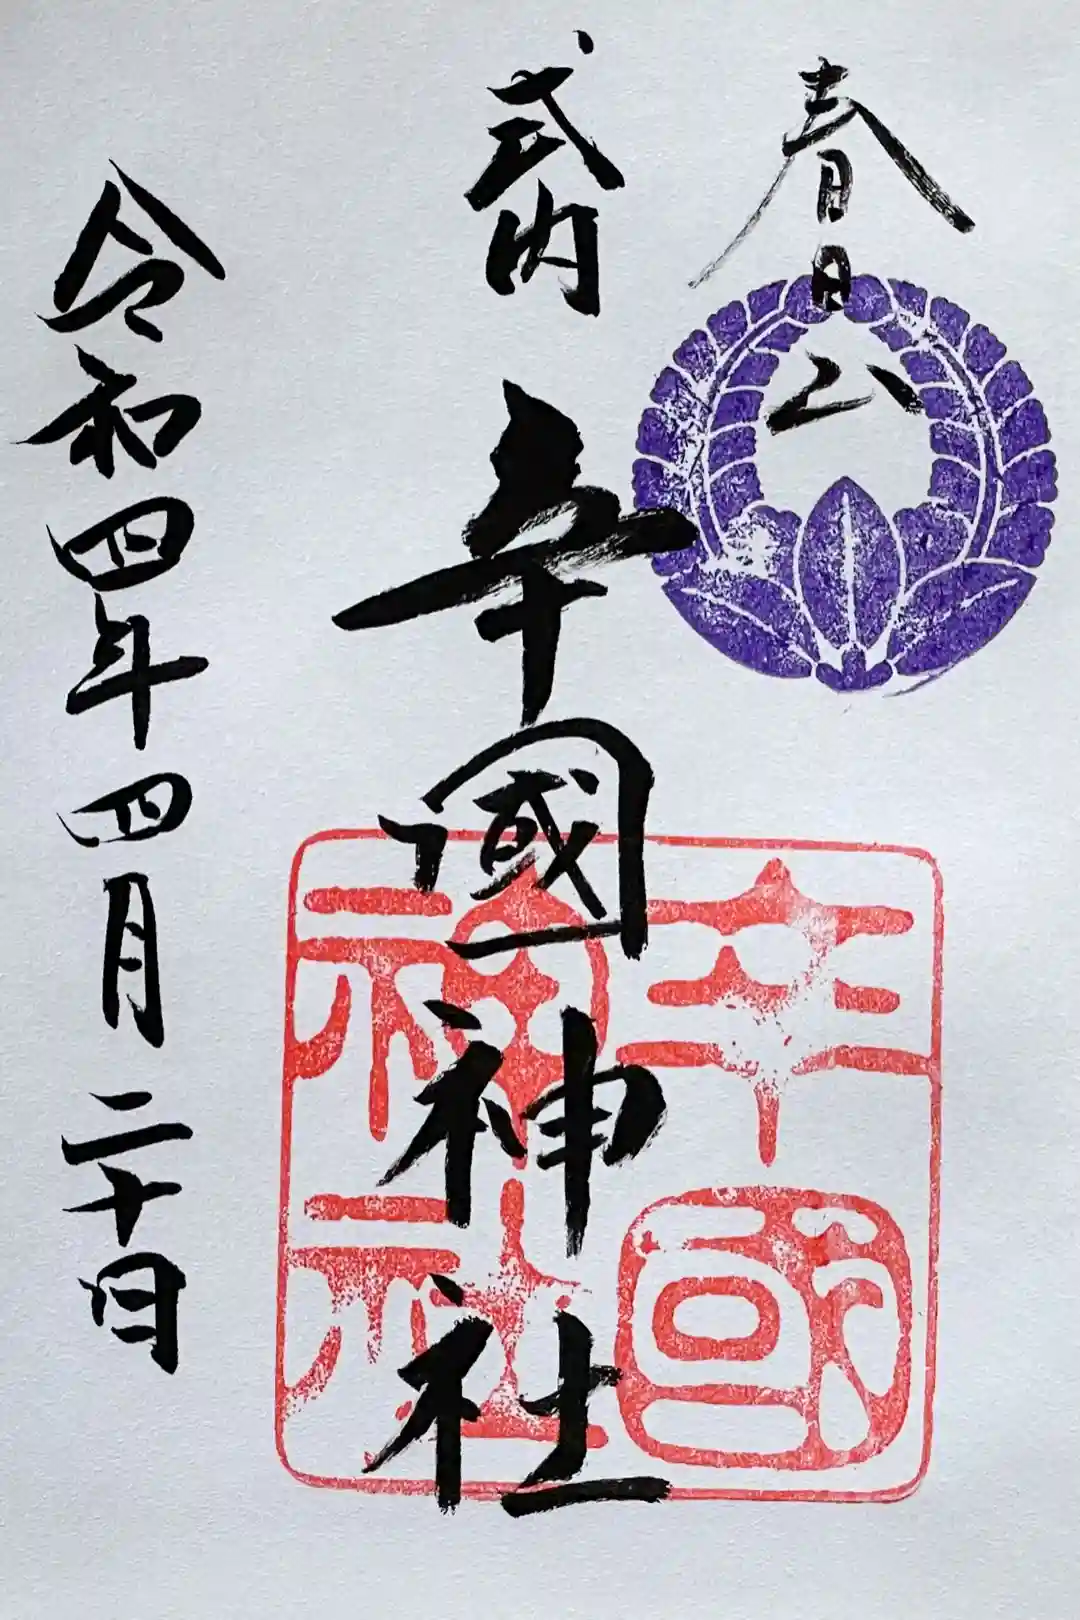 春日山
式内 辛國神社
令和四年四月二十日
辛國神社